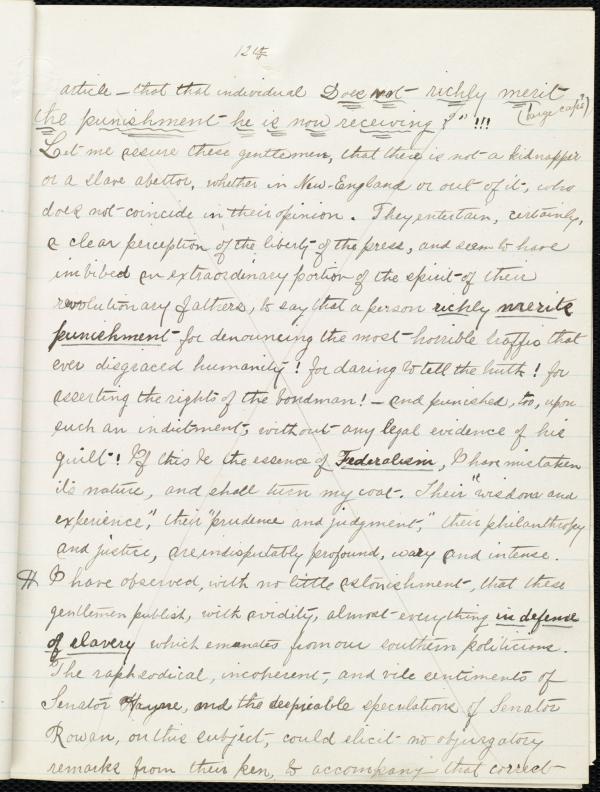 124
article – that that individual Does not richly merit
the punishment he is now receiving?" !!! (large caps?)
Let me assure these gentlemen, that there is not a kidnapper
or a slave abettor, whether in New-England or out of it, who
does not coincide in their opinion. They entertain, certainly,
a clear perception of the liberty of the press, and seem to have
imbibed an extraordinary portion of the spirit of their
revolutionary fathers, to say that a person richly merits
punishment for denouncing the most horrible traffic that
ever disgraced humanity! for daring to tell the truth! for
asserting the rights of the bondman! – and punished, too, upon
such an indictment, without any legal evidence of his
guilt! If this be the essence of Federalism, I have mistaken
its nature, and shall turn my coat. Their "wisdom and
experience", their "prudence and judgment," their philanthropy
and justice, are indisputably profound, wary and intense.
# I have observed, with no little astonishment, that these
gentlemen publish, with avidity, almost everything in defense
of slavery which emanates from our southern politicians.
The raphsodical, incoherent, and vile sentiments of
Senator Hayne, and the despicable speculations of Senator
Rowan, on this subject, could elicit no objurgatory
remarks from their pen, to accompany that correct